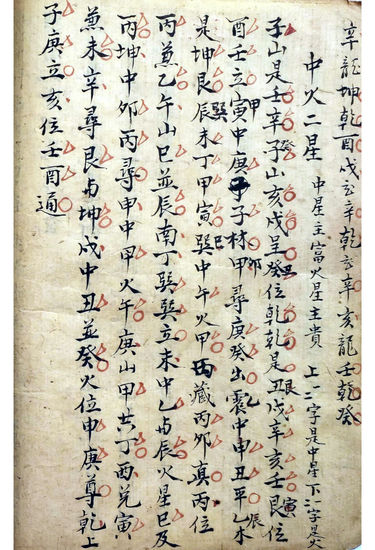 辛龍坤乾酉戌亥辛乾亥辛亥龍壬乾癸
中火二星 中星主富火星主貴 上一字是中星下一字是火
子山是壬辛子山亥戌呈癸位乾乾是丑戌辛亥壬艮位
酉壬立寅中庚子子材甲尋庚癸出震中申丑平乙水
是坤艮辰未丁甲寅巽中午火甲丙藏丙卯真丙位
丙兼乙午山巳並辰南丁巽巽立未中乙与辰火星巳及
丙坤中卯丙尋申中甲火午庚山甲共丁酉兑寅
兼未辛尋艮与坤戌中丑並癸火位申庚尊乾上
子庚立亥位壬酉通